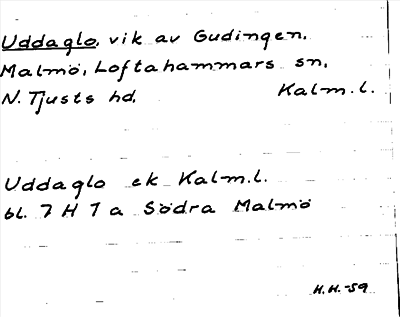 Uddaglo, vik av Gudingen,
Malmö, Loftahammars sn,
N. Tjusts hd, Kalm.l.
Uddaglo ek Kalm.l.
bl. 7 H 7 a Södra Malmö
H.H.-59